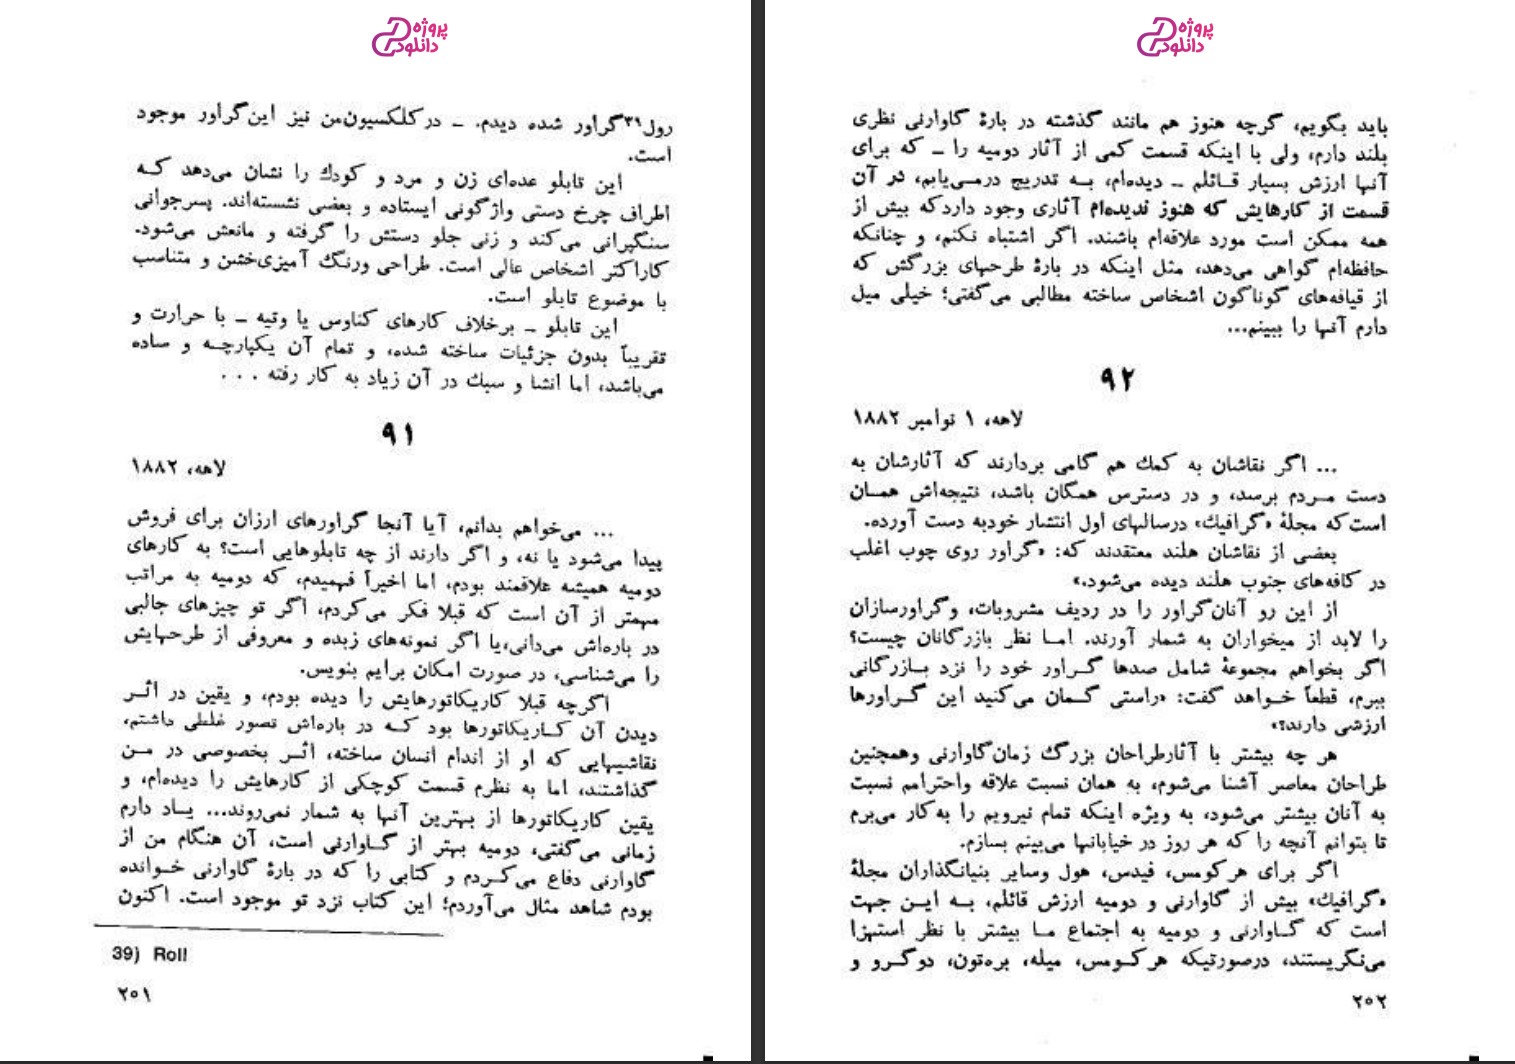 پروژه
دانلود
رول۳۹گراور شده دیدم. ــ در کلکسیون‌من نیز این‌گراور موجود
است.
این تابلو عده‌ای زن و مرد و کودك را نشان می‌دهد کـه
اطراف چرخ دستی واژگونی ایستاده و بعضی نشسته‌اند. پسرجوانی
سنگپرانی می‌کند و زنی جلو دستش را گرفته و مانعش می‌شود.
کاراکتر اشخاص عالی است. طراحی ورنگ آمیزی‌خشن و متناسب
با موضوع تابلو است.
این تابلو ــ برخلاف کارهای کناوس یا وتیه ــ با حرارت و
تقریباً بدون جزئیات ساخته شده، و تمام آن یکپارچـه و ساده
می‌باشد، اما انشا و سبك در آن زیاد به کار رفته . . .
۹۱
لاهه، ۱۸۸۲
... می‌خواهم بدانم، آیا آنجا گراورهای ارزان برای فروش
پیدا می‌شود یا نه، و اگر دارند از چه تابلوهایی است؟ به کارهای
دومیه همیشه علاقمند بودم، اما اخیراً فهمیدم، که دومیه به مراتب
مهمتر از آن است که قبلا فکر می‌کردم، اگر تو چیزهای جالبی
در باره‌اش می‌دانی،یا اگر نمونه‌های زبده و معروفی از طرحهایش
را می‌شناسی، در صورت امکان برایم بنویس.
اگرچه قبلا کاریکاتورهایش را دیده بودم، و یقین در اثـر
دیدن آن کـاریکاتورها بود کـه در باره‌اش تصور غلطی داشتم،
نقاشیهایی که او از اندام انسان ساخته، اثـر بخصوصی در مـن
گذاشتند، اما به نظرم قسمت کوچکی از کارهایش را دیده‌ام، و
یقین کاریکاتورها از بهترین آنها به شمار نمی‌روند... یـاد دارم
زمانی می‌گفتی، دومیه بهتر از گـاوارنی است، آن هنگام من از
گاوارنی دفاع می‌کـردم و کتابی را که در بارهٔ گاوارنی خـوانده
بودم شاهد مثال می‌آوردم؛ این کتاب نزد تو موجود است. اکنون
39) Roll
۲۵۱
پروژه
دانلود
باید بگویم، گرچه هنوز هم مانند گذشته در بارهٔ گاوارنی نظری
بلند دارم، ولی با اینکه قسمت کمی از آثار دومیه را ــ که برای
آنها ارزش بسیار قـائلم ــ دیده‌ام، بـه تدریج درمـی‌یابم، در آن
قسمت از کارهایش که هنوز ندیده‌ام آثاری وجود داردکه بیش از
همه ممکن است مورد علاقه‌ام باشند. اگر اشتباه نکنم، و چنانکه
حافظه‌ام گواهی می‌دهد، مثل اینکه در بارهٔ طرحهای بزرگش که
از قیافه‌های گوناگون اشخاص ساخته مطالبی می‌گفتی؛ خیلی میل
دارم آنها را ببینم...
۹۲
لاهه، ۱ نوامبر ۱۸۸۲
... اگر نقاشان به کمك هم گامی بردارند که آثارشان به
دست مـردم برسد، و در دسترس همگان باشد، نتیجه‌اش همـان
است‌که مجلهٔ «گرافیك» درسالهای اول انتشار خودبه دست آورده.
بعضی از نقاشان هلند معتقدند که: «گراور روی چوب اغلب
در کافه‌های جنوب هلند دیده می‌شود.»
از این رو آنان‌گراور را در ردیف مشروبات، وگراورسازان
را لابد از میخواران به شمار آورند. امـا نظر بازرگانان چیست؟
اگر بخواهم مجموعهٔ شامل صدها گـراور خود را نزد بـازرگانی
ببرم، قطعاً خـواهد گفت: «راستی گـمان می‌کنید این گـراورها
ارزشی دارند؟»
هر چه بیشتر با آثارطراحان بزرگ زمان‌گاوارنی وهمچنین
طراحان معاصر آشنا می‌شوم، به همان نسبت علاقه واحترامم نسبت
به آنان بیشتر می‌شود، به ویژه اینکه تمام نیرویم را به‌کار می‌برم
تا بتوانم آنچه را که هر روز در خیابانها می‌بینم بسازم.
اگر برای هرکومس، فیدس، هول وسایر بنیانگذاران مجلهٔ
«گرافیك» بیش از گاوارنی و دومیه ارزش قائلم، بـه ایـن جهت
است که گـاوارنی و دومیه به اجتماع مـا بیشتر با نظر استهزا
می‌نگریستند، درصورتیکه هرکـومس، میله، بره‌تون، دوگـرو و
۲۵۲